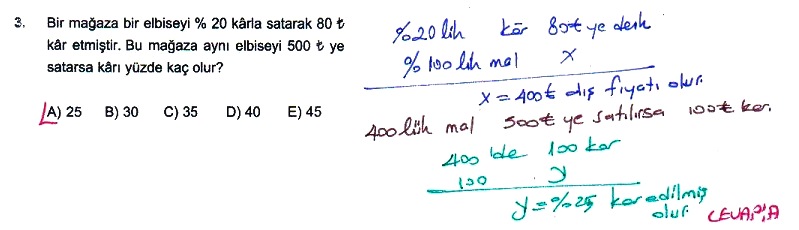 3. Bir mağaza bir elbiseyi % 20 kârla satarak 80 ₺
kâr etmiştir. Bu mağaza aynı elbiseyi 500 ₺ ye
satarsa kârı yüzde kaç olur?
A) 25 B) 30 C) 35 D) 40 E) 45
%20 lik kâr 80₺ ye denk
% 100 lük mal x
x = 400₺ alış fiyatı olur.
400 lük mal 500₺ ye satılırsa 100₺ kar.
400 'de 100 kar
100 y
y = %25 kar edilmiş
olur. CEVAP: A